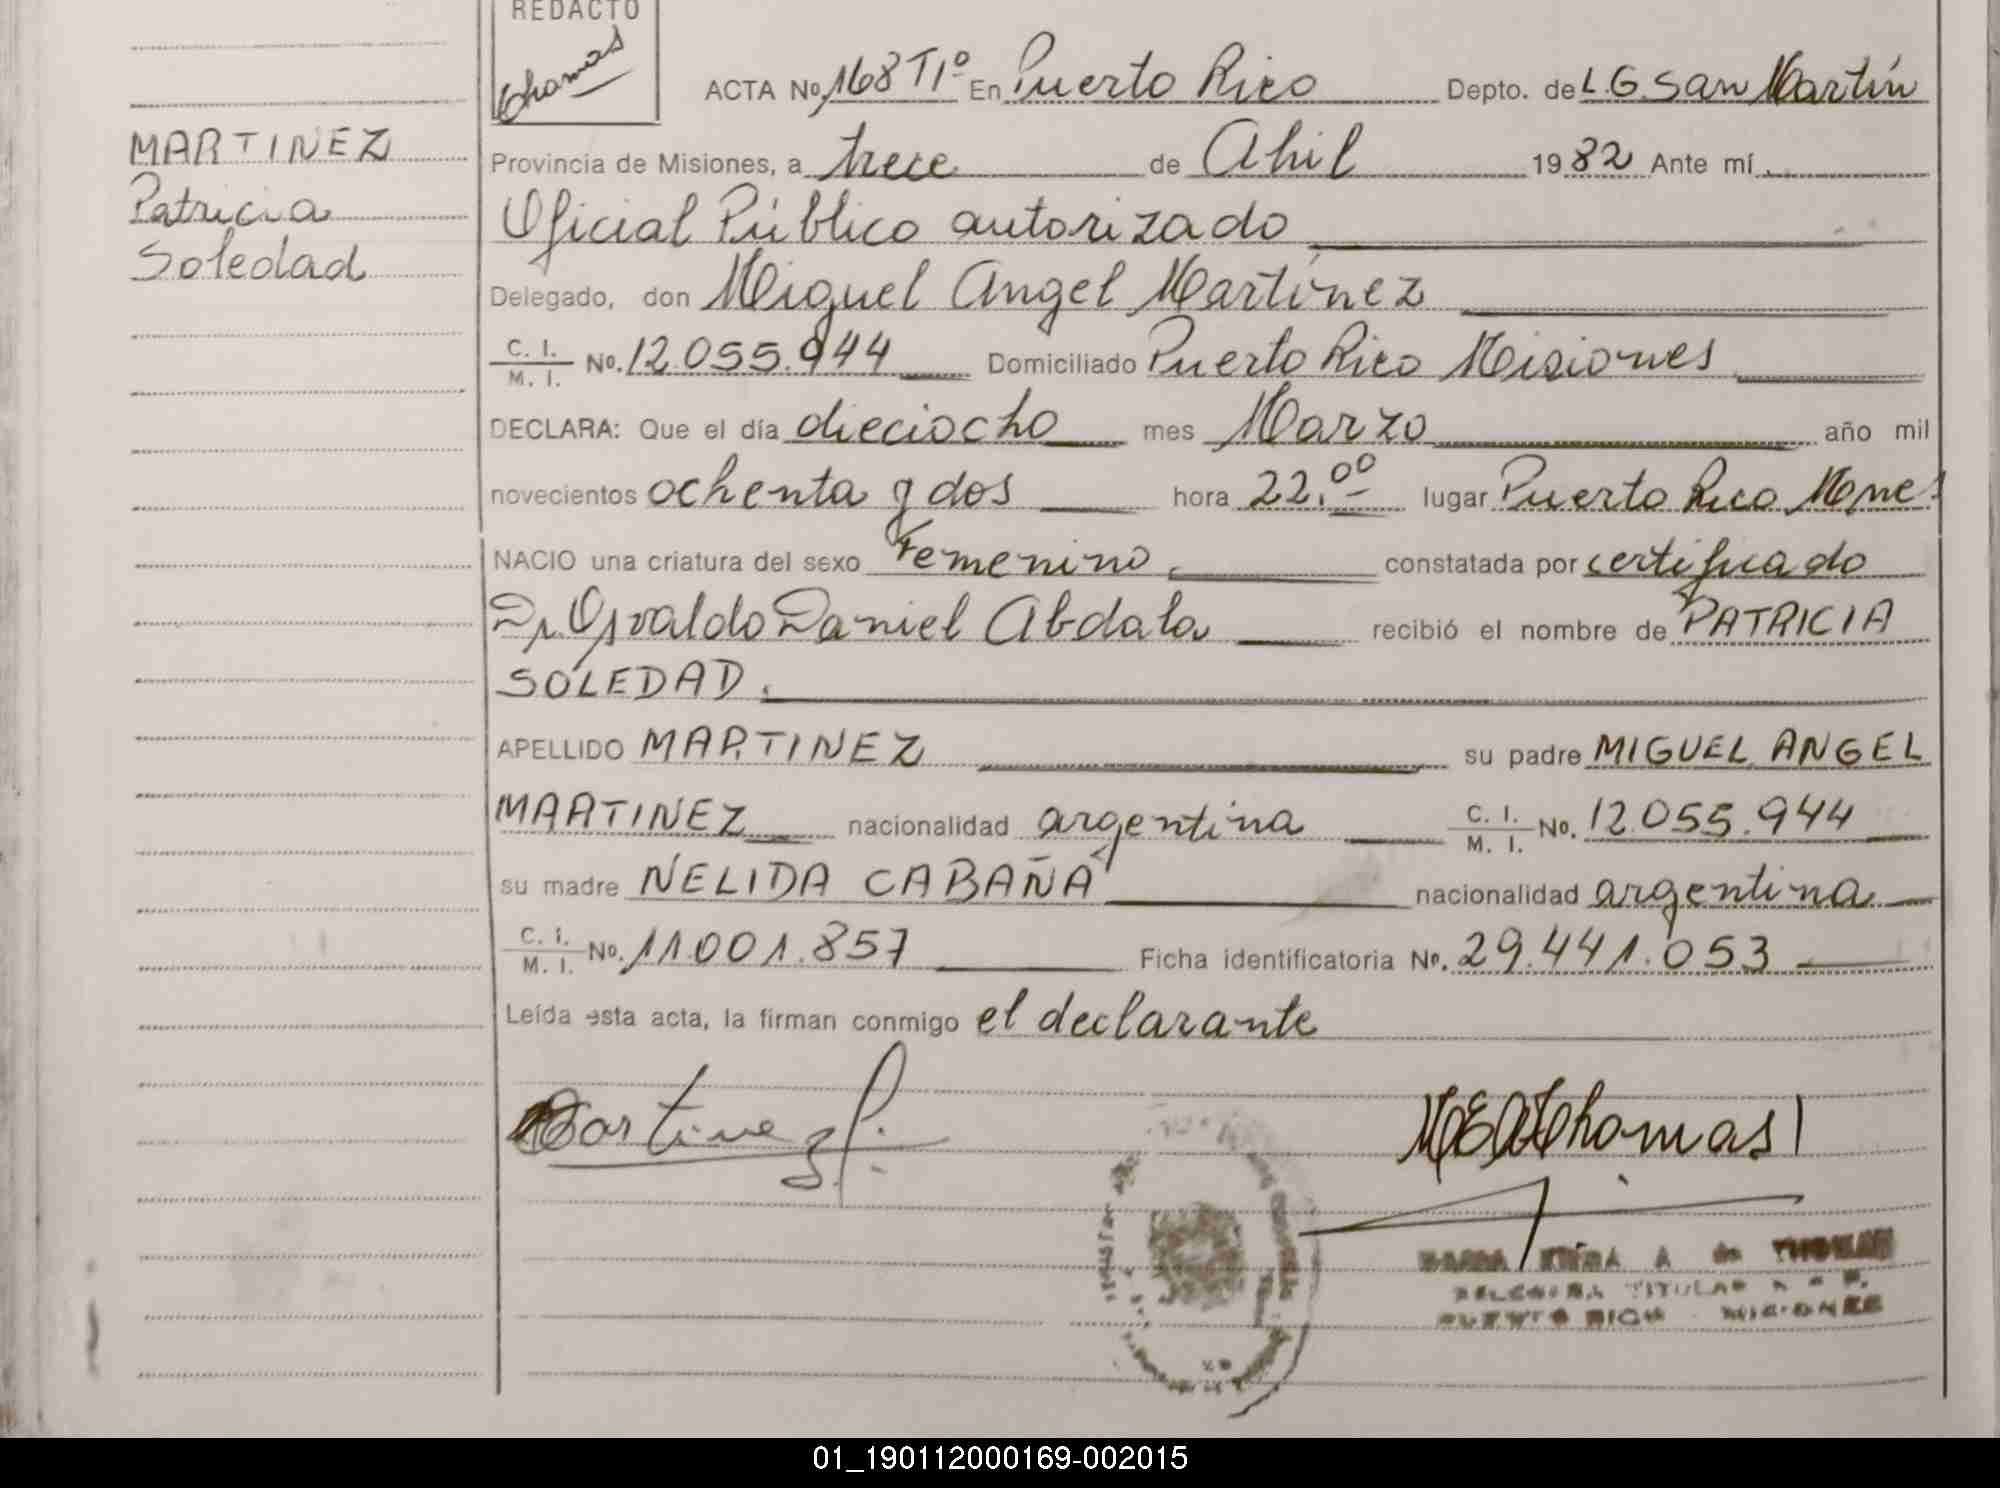 REDACTO
Thomas
MARTINEZ
Patricia
Soledad
ACTA No. 168 T1º En Puerto Rico Depto. de L.G. San Martín
Provincia de Misiones, a trece de Abril 1982 Ante mí,
Oficial Público autorizado
Delegado, don Miguel Angel Martínez
C. I. / M. I. No. 12.055.944 Domiciliado Puerto Rico Misiones
DECLARA: Que el día dieciocho mes Marzo año mil
novecientos ochenta y dos hora 22.00 lugar Puerto Rico Mnes
NACIO una criatura del sexo Femenino constatada por certificado
Dr. Osvaldo Daniel Abdala recibió el nombre de PATRICIA
SOLEDAD.
APELLIDO MARTINEZ su padre MIGUEL ANGEL
MARTINEZ nacionalidad argentina C. I. / M. I. No. 12.055.944
su madre NELIDA CABAÑA nacionalidad argentina
C. I. / M. I. No. 11.001.857 Ficha identificatoria No. 29.441.053
Leída esta acta, la firman conmigo el declarante
Martinez
Thomas
A de THOMAS
TITULAR
PUERTO RICO - MISIONES
01_190112000169-002015